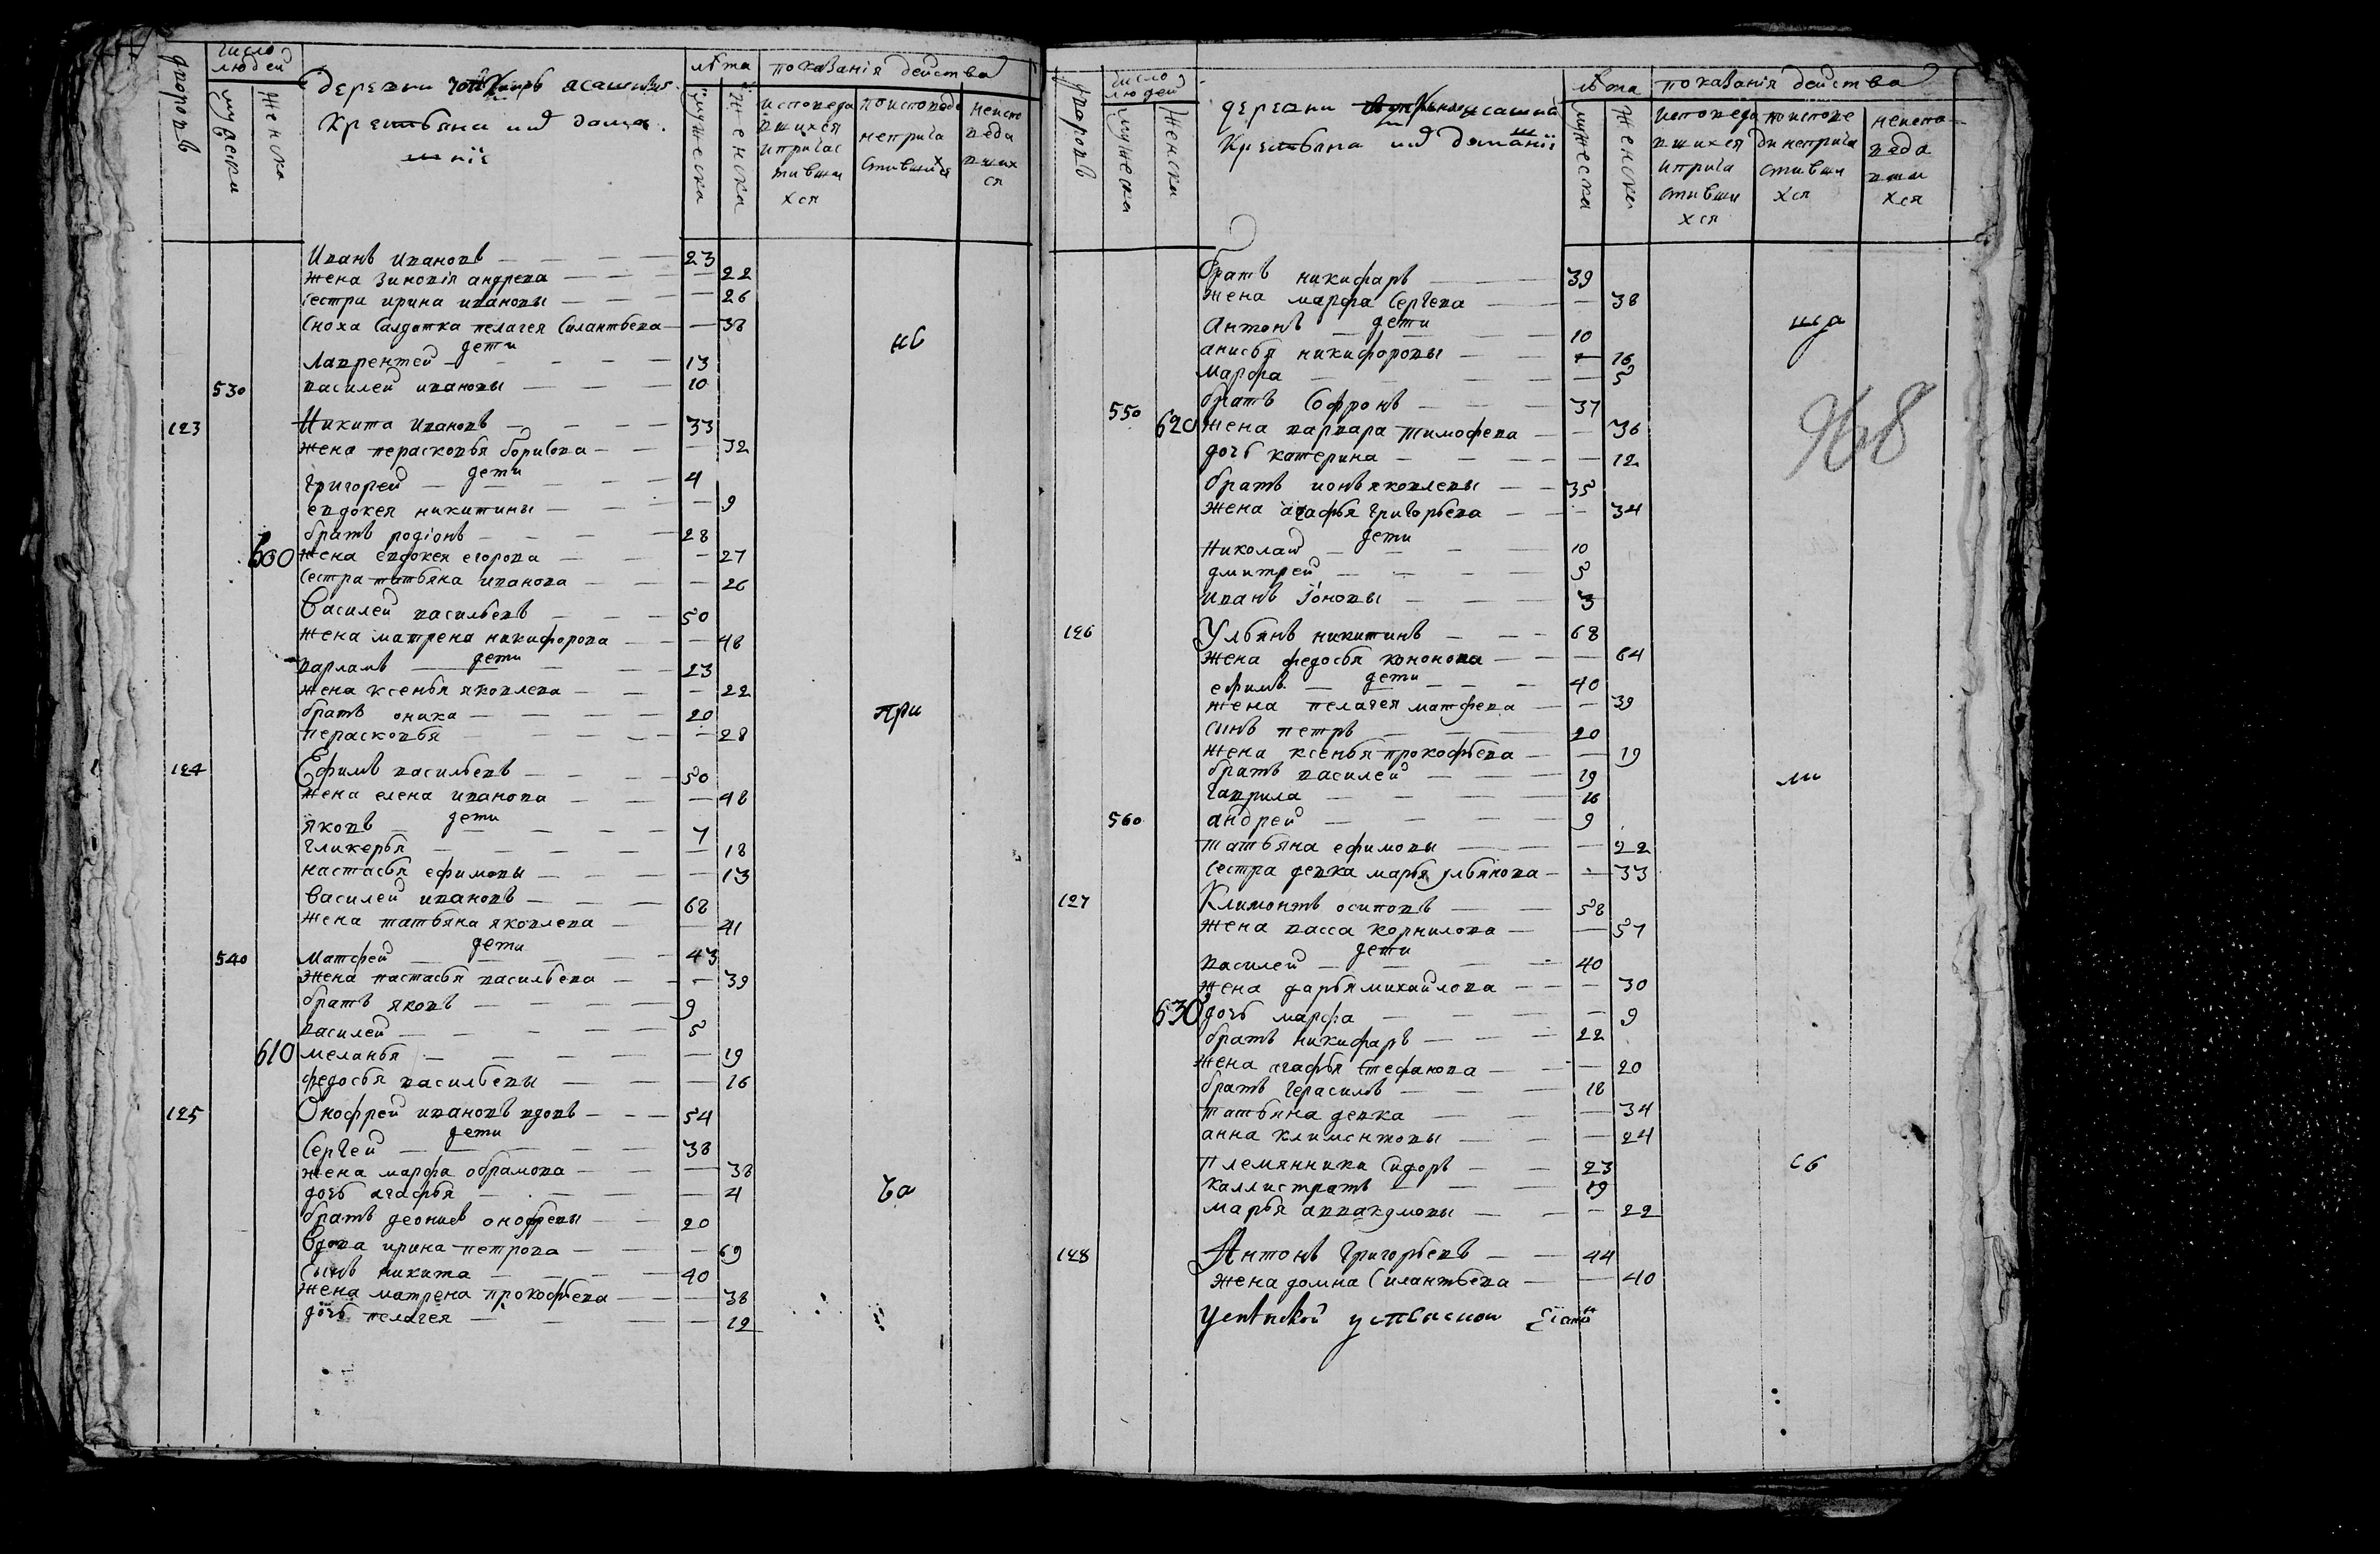 число людей
дворовъ
мужеска
женска
деревни ясашныя
крестьяна и их домашніе
лѣта
мужеска
женска
показанія действа
исповедавшихся и причастившихся
по исповеди непричастившихся
неисповедавшихся
Иванъ ивановъ 23
жена Зиновія андреева 22
Сестра ирина ивановы 26
Сноха Салдатка пелагея Силантьева 38
дети
Лаврентей 13
530 василей ивановы 10
123 Никита Ивановъ 33
жена перасковья борисова 32
дети
григорей 4
евдокея никитины 9
братъ родіонъ 28
600 жена евдокея егорова 27
Сестра татьяна иванова 26
Василей васильевъ 50
жена матрена никифорова 48
дети
варламъ 23
жена ксенья яковлева 22
братъ оника 20
перасковья 28
124 Ефимъ васильевъ 50
жена елена иванова 48
дети
яковъ 7
гликерья 18
настасья ефимовы 13
Василей ивановъ 68
жена татьяна яковлева 41
дети
540 матфей 43
жена настасья васильева 39
братъ яковъ 9
василей 5
610 меланья 19
федосья васильевы 16
125 Онофрей ивановъ вдовъ 54
дети
Сергей 38
жена марфа обрамова 38
дочь агафья 4
братъ деонисъ онофревы 20
Вдова ирина петрова 69
Сынъ никита 40
жена матрена прокофьева 38
дочь пелагея 12
нб
при
ча
число людей
дворовъ
мужеска
женски
деревни ясашныя
крестьяна и их доманіи
лѣта
мужеска
женски
показанія действа
исповедавшихся и причастившихся
по исповеди непричастившихся
неисповедавшихся
братъ никифаръ 39
жена марфа Сергева 38
дети
Антонъ 10
анисья никифоровы 16
Марфа 5
550 братъ Софронъ 37
620 жена варвара тимофева 36
дочь катерина 12
братъ ионъ яковлевы 35
жена агафья григорьева 34
дети
николай 10
дмитрей 5
иванъ іоновы 3
126 Ульянъ никитинъ 68
жена федосья кононова 64
дети
ефимъ 40
жена пелагея матфева 39
сынъ петръ 20
жена ксенья прокофьева 19
братъ василей 19
гаврила 16
560 андрей 9
татьяна ефимовы 22
Сестра девка марья ульянова 33
127 Климонтъ осиповъ 58
жена васса корнилова 57
дети
василей 40
жена дарья михайлова 30
630 дочь марфа 9
братъ никифаръ 22
жена агафья Стефанова 20
братъ герасимъ 18
татьяна девка 34
анна климентовы 24
племянники Сидоръ 23
каллистратъ 19
марья 22
128 Антонъ Григорьевъ 44
жена домна Силантьева 40
968
ща
ли
сб